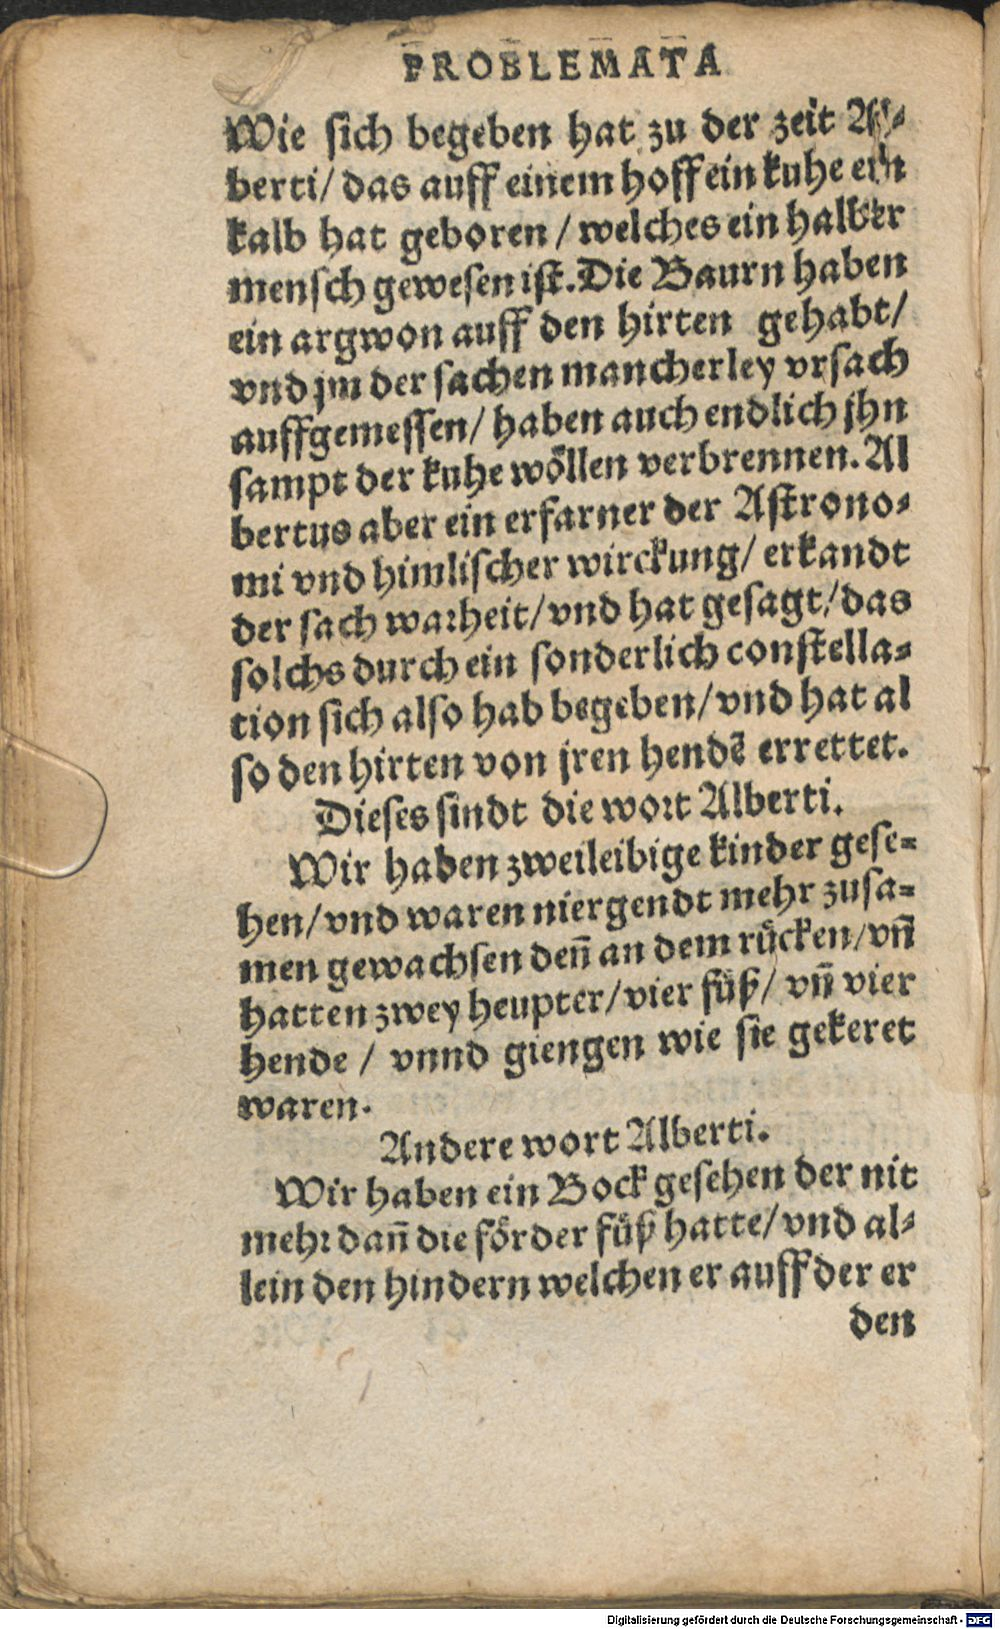 PROBLEMATA
Wie sich begeben hat zu der zeit Al-
berti/ das auff einem hoff ein kuhe ein
kalb hat geboren / welches ein halber
mensch gewesen ist. Die Baurn haben
ein argwon auff den hirten gehabt/
vnd jm der sachen mancherley vrsach
auffgemessen/ haben auch endlich jhn
sampt der kuhe wöllen verbrennen. Al
bertus aber ein erfarner der Astrono-
mi vnd himlischer wirckung/ erkandt
der sach warheit/ vnd hat gesagt/ das
solchs durch ein sonderlich constella-
tion sich also hab begeben/ vnd hat al
so den hirten von jren hendē errettet.
Dieses sindt die wort Alberti.
Wir haben zweileibige kinder gese-
hen/ vnd waren niergendt mehr zusa-
men gewachsen deñ an dem rücken/ vñ
hatten zwey heupter/ vier füß/ vñ vier
hende / vnnd giengen wie sie gekeret
waren.
Andere wort Alberti.
Wir haben ein Bock gesehen der nit
mehr dañ die förder füß hatte/ vnd al-
lein den hindern welchen er auff der er
den
Digitalisierung gefördert durch die Deutsche Forschungsgemeinschaft - DFG